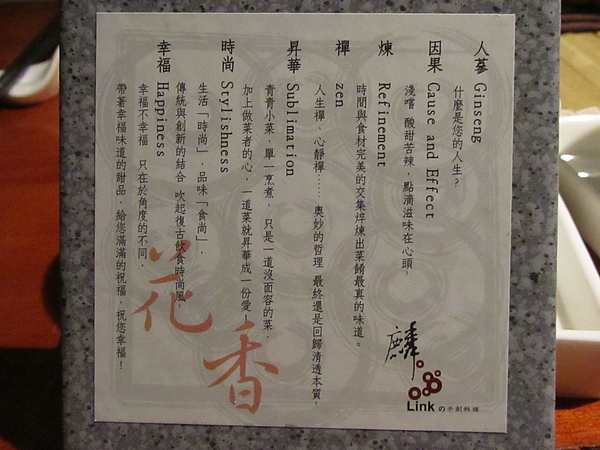 人蔘 Ginseng
什麼是您的人生？
因果 Cause and Effect
淺嚐 酸甜苦辣，點滴滋味在心頭，
煉 Refinement
時間與食材完美的交集焠煉出菜餚最真的味道。
禪 zen
人生禪、心靜禪……奧妙的哲理 最終還是回歸清透本質，
昇華 Sublimation
青青小菜，單一烹煮，只是一道沒面容的菜，
加上做菜者的心，一道菜就昇華成一份愛！
時尚 Stylishness
生活「時尚」，品味「食尚」，
傳統與創新的結合 吹起復古飲食時尚風，
幸福 Happiness
幸福不幸福，只在於角度的不同，
帶著幸福味道的甜品，給您滿滿的祝福，祝您幸福！
花香
麟
Link の手創料理